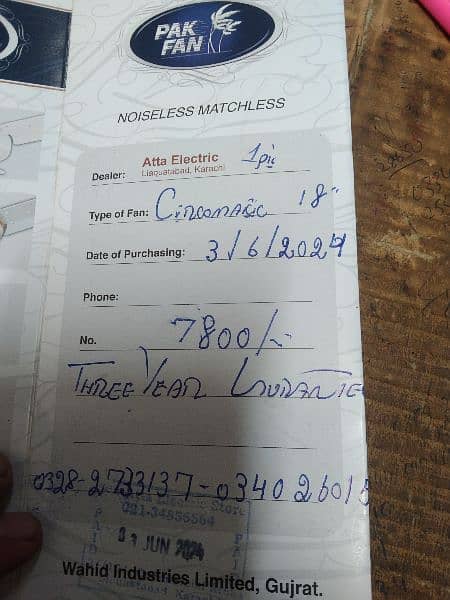 PAK
FAN
NOISELESS MATCHLESS
Dealer: Atta Electric 1 pic
Liaquatabad, Karachi
Type of Fan: Ciromatic 18"
Date of Purchasing: 3/6/2024
Phone:
No. 7800/-
THREE YEAR
0328-2733137-0340 26015
021-34855564
03 JUN 2024
Wahid Industries Limited, Gujrat.